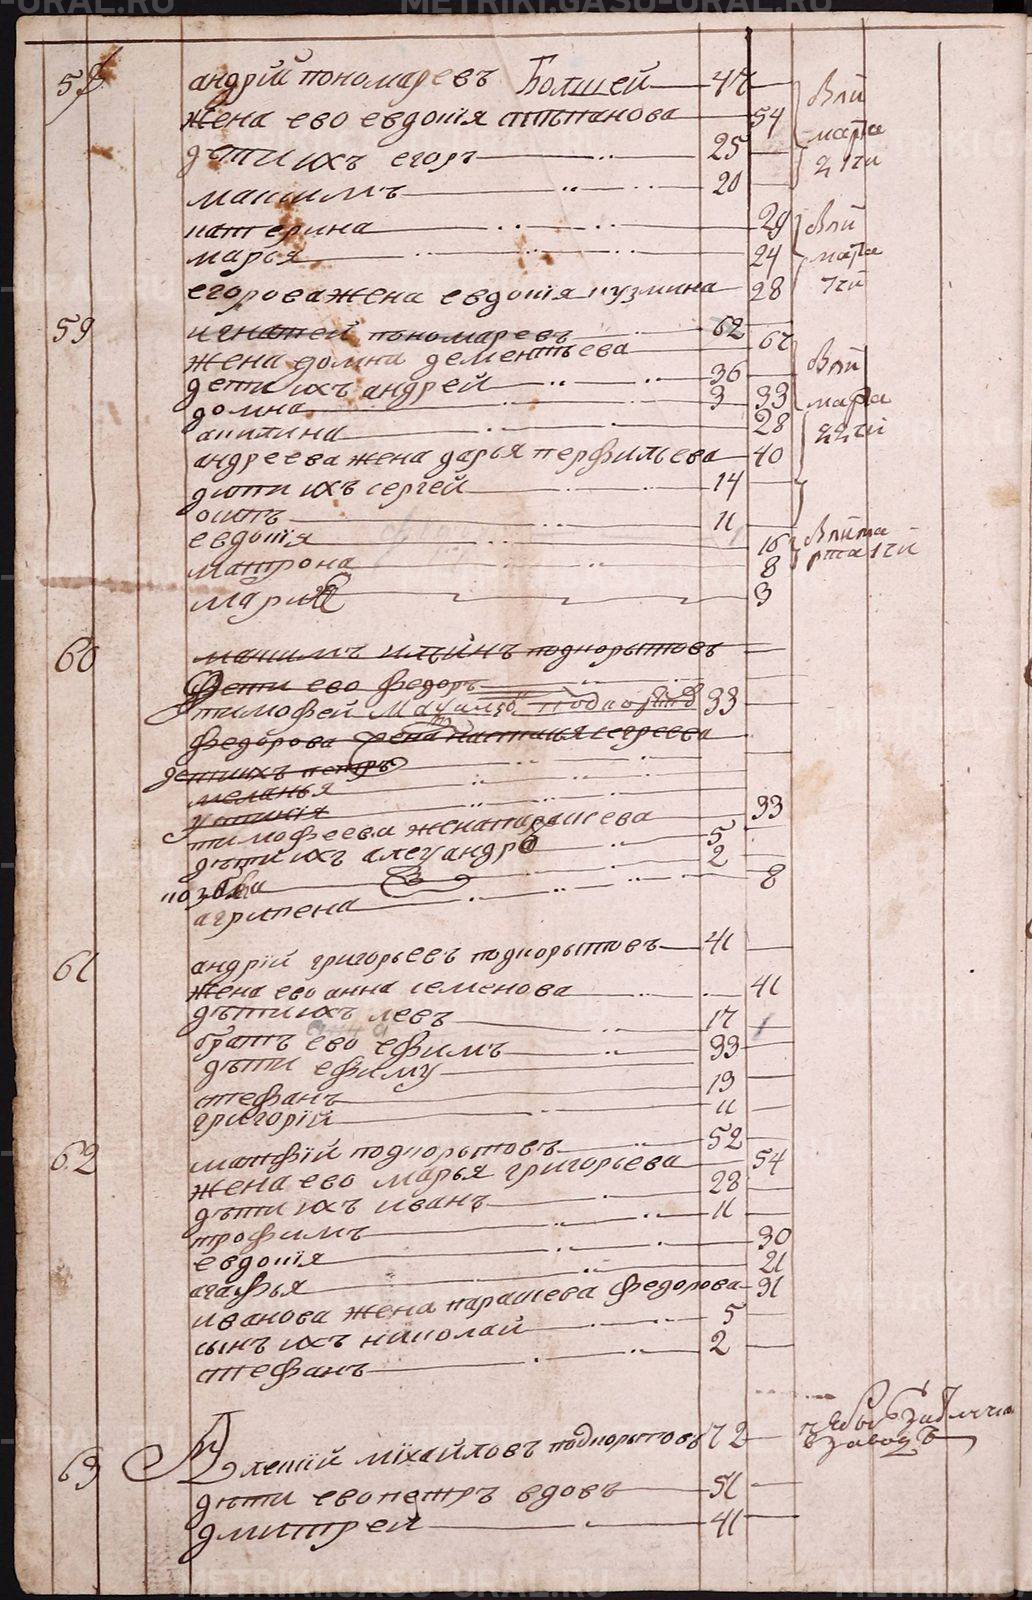 METRIKI.GASU-URAL.RU
андрій пономаревъ Болшей 47
жена ево евдокія стѣпанова 54
дѣти ихъ егоръ 25
максимъ 20
катерина 29
марья 24
егорова жена евдокія кузмина 28
59 игнатей пономаревъ 62
жена домна дементьева 67
дети ихъ андрей 36
домна 3 33
акилина 28
андреева жена дарья перфильева 40
дѣти ихъ сергей 14
осипъ 11
евдокія 16
матрона 8
мария 3
60 максимъ ильинъ подкорытовъ
дети ево федоръ
тимофей 33
федорова жена настасья
дети ихъ петръ
меланья
устинія
тимофеева жена парасева 33
дѣти ихъ алеѯандръ 5
козьма 2
агрипена 8
61 андрій григорьевъ подкорытовъ 41
жена ево анна семенова 41
дѣти ихъ левъ 17
братъ ево ефимъ 39
дѣти ефиму
стефанъ 13
григорій 11
62 матфій подкорытовъ 52
жена ево марья григорьева 54
дѣти ихъ иванъ 28
трофимъ 11
евдокія 30
агафья 21
иванова жена парасева федорова 31
сынъ ихъ николай 5
стефанъ 2
63 Алексій міхайловъ подкорытовъ 72
дѣти ево петръ вдовъ 51
дмитрей 41
METRIKI.GASU-URAL.RU